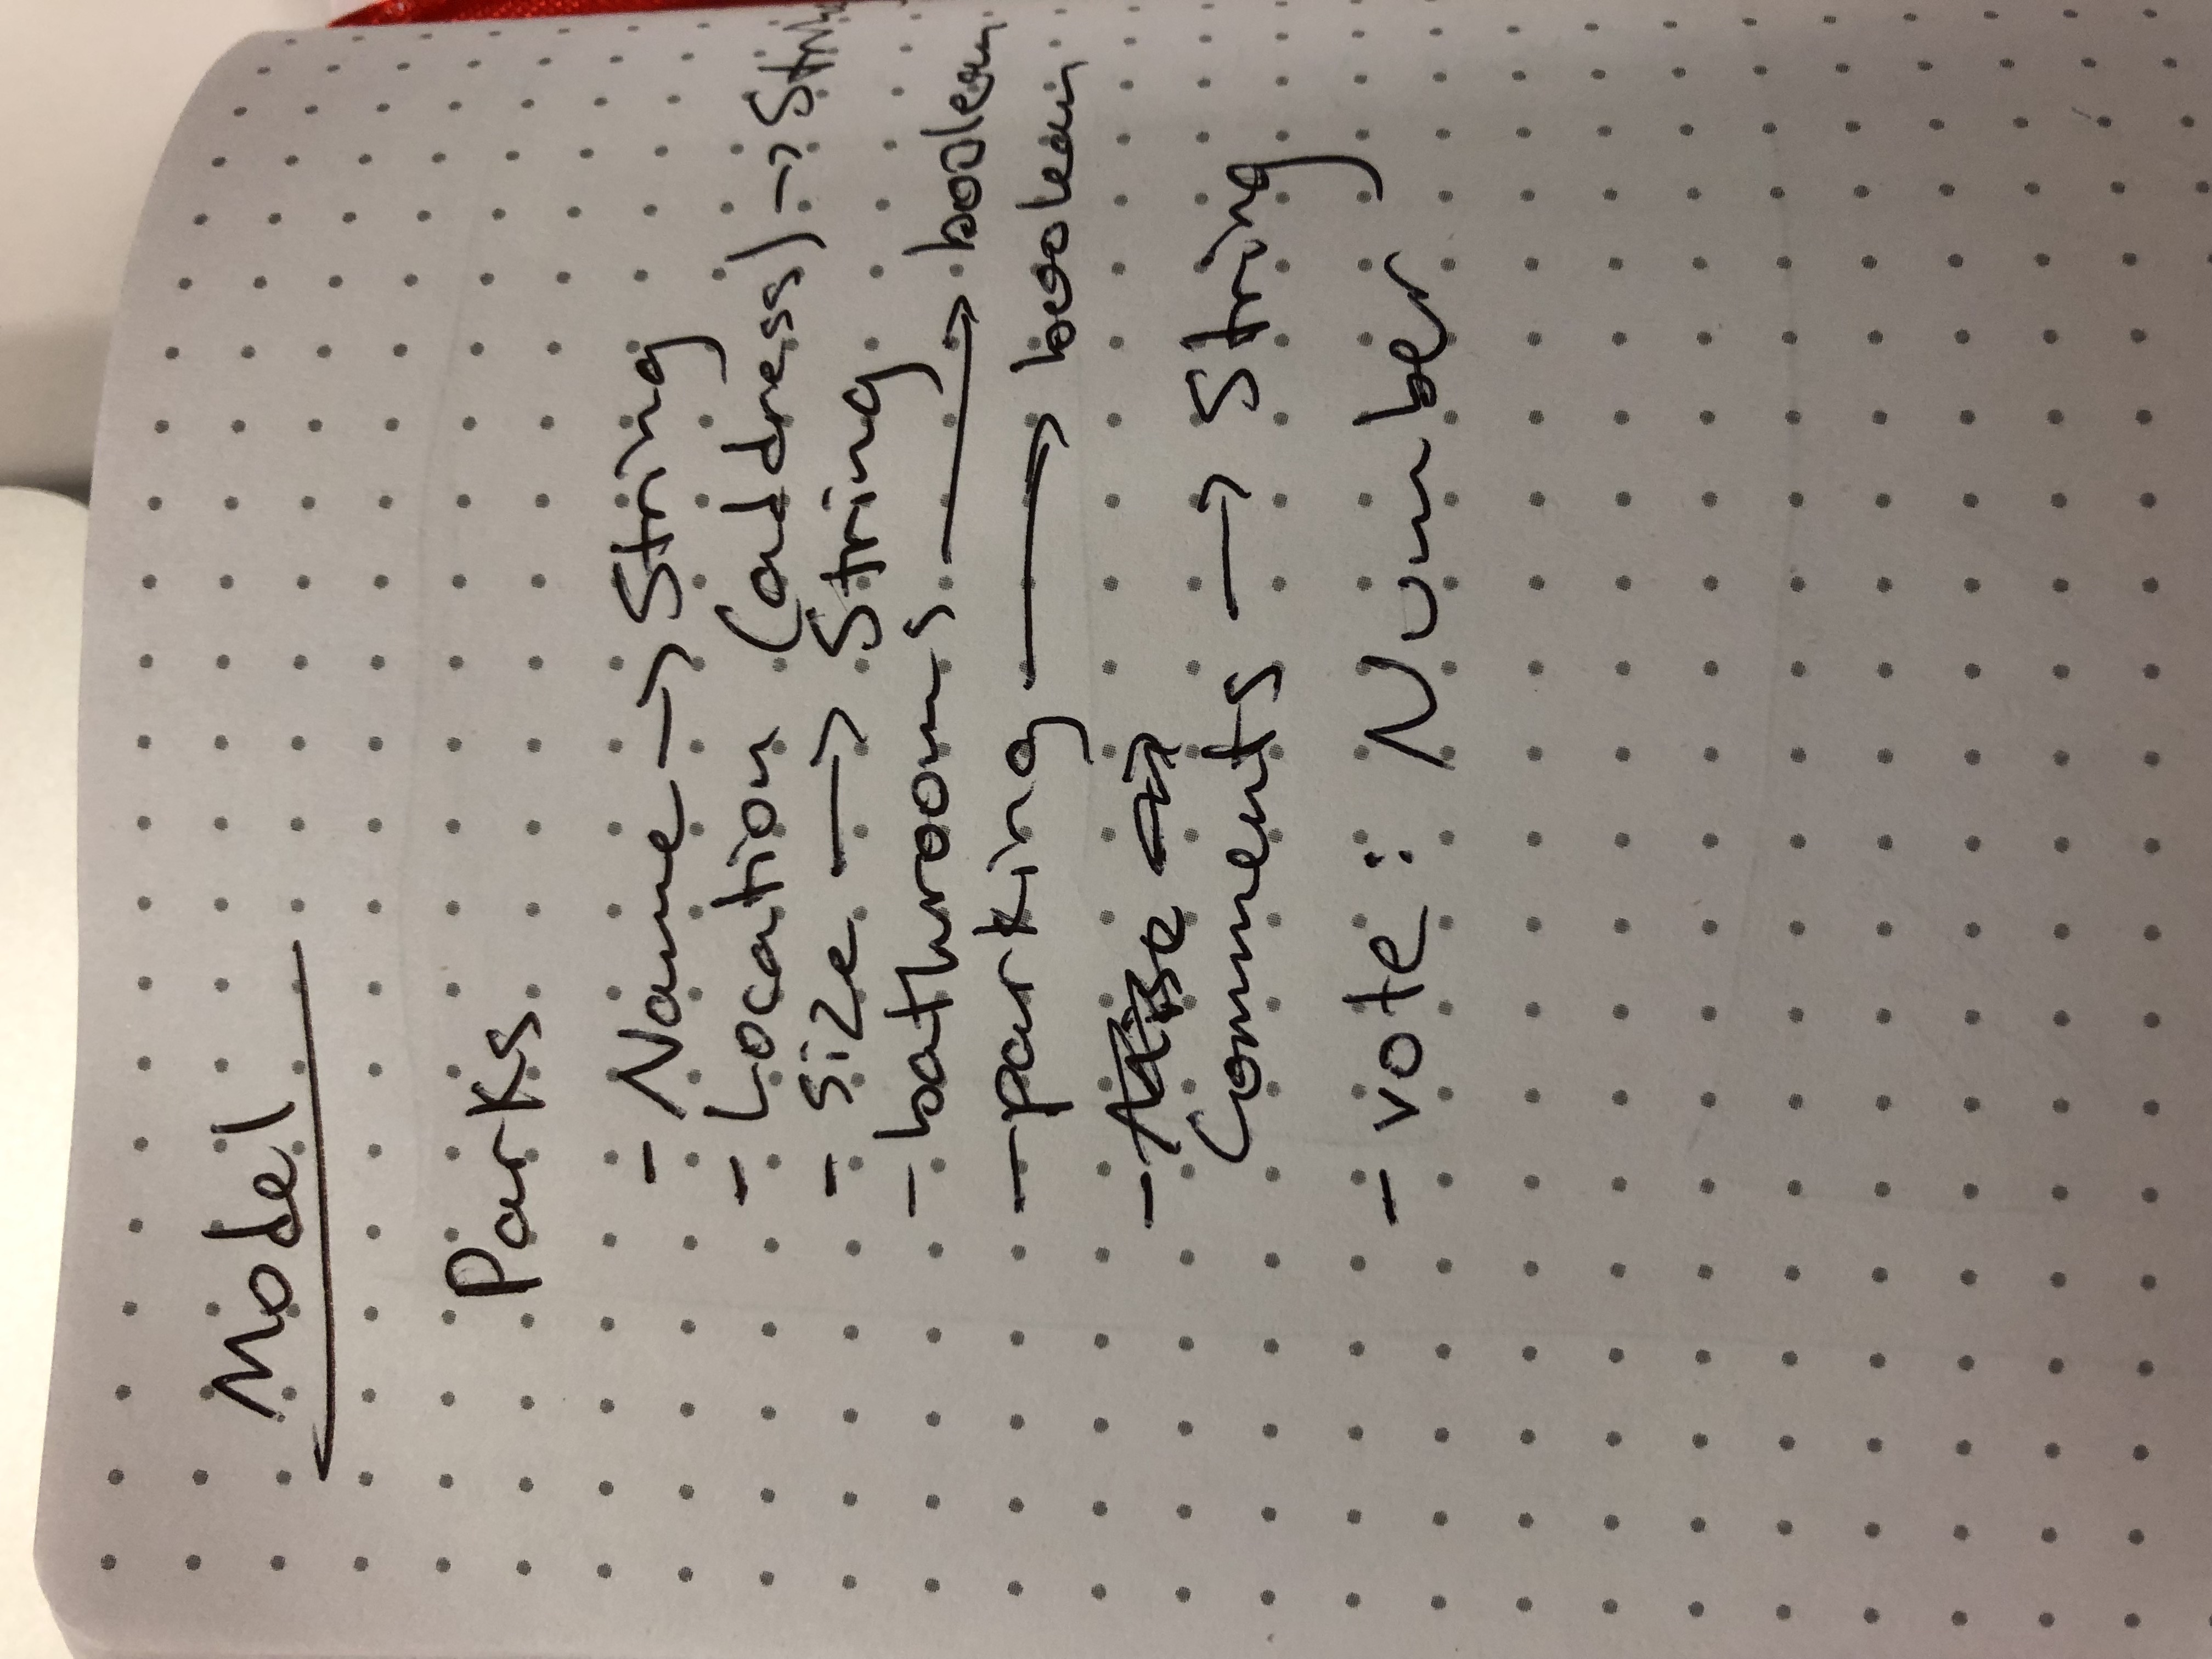 Model
Parks
- Name -> String
- Location (address) ->
- Size -> String
- bathrooms -> boolean
- parking -> boolean
-
Comments -> String
- vote : Number